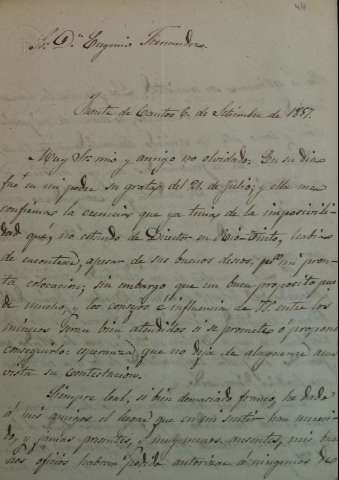 44
Sr. Dn. Eugenio Fernandez.
Fuente de Cantos 6. de Setiembre de 1857.
Muy Sr. mio y amigo no olvidado: En su dia
fué en mi poder su grata del 21. de Julio; y ella me
confirma la creencia que ya tenia de la imposivili-
dad que, no estando de Director en Rio-Tinto, habia
de encontrar, apesar de sus buenos deseos, pa. mi pron-
ta colocacion; sin embargo que un buen proposito pue-
de mucho, y los consejos é influencia de V. entre los
mineros serian bien atendidos si se promete ó propone
conseguirlo: esperanza que no deja de alaguarme aun
vista su contestacion.
Siempre leal, si bien demasiado franco, he dado
á mis amigos el lugar que en mi sentir han mereci-
do, y jamas presentes, y muy menos ausentes, mis
oficios habran podido autorizar á ninguno de